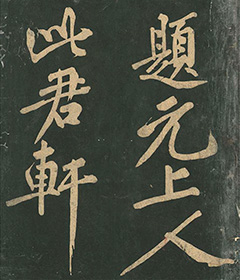 題元上人
此君軒